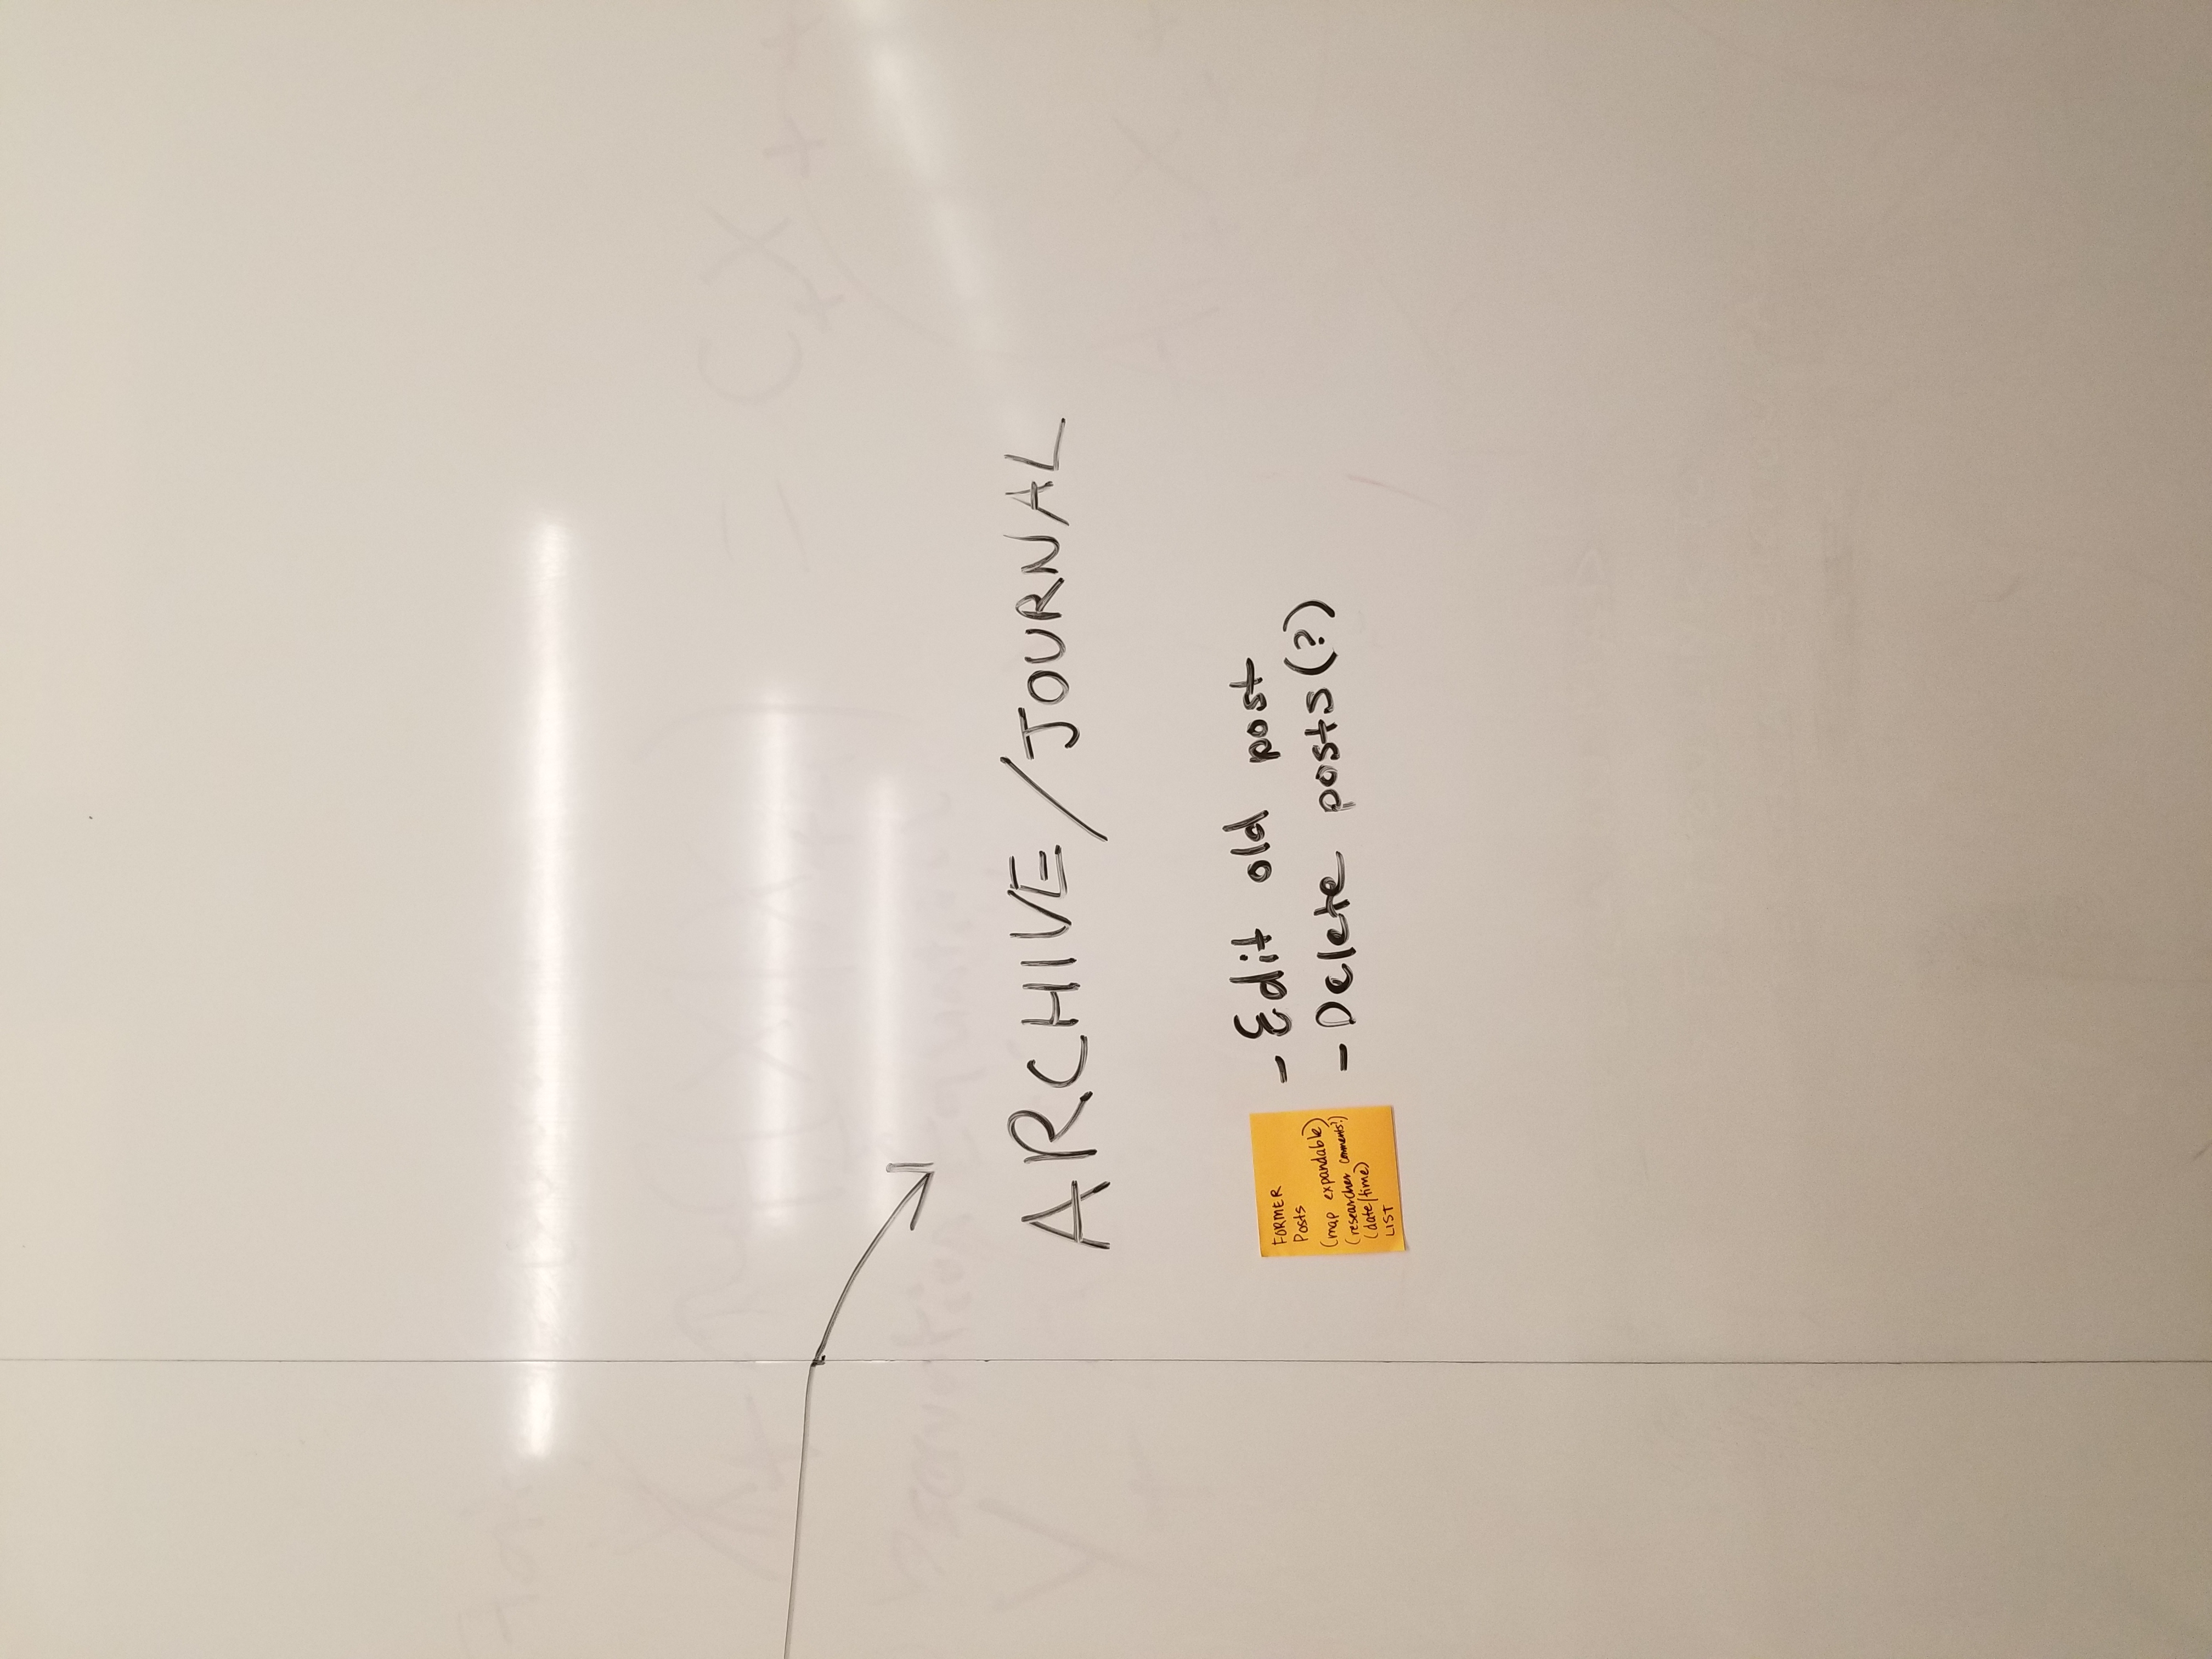 ARCHIVE/JOURNAL
FORMER
Posts
(map expandable)
(researcher comments?)
(date/time)
LIST
- Edit old post
- Delete posts(?)